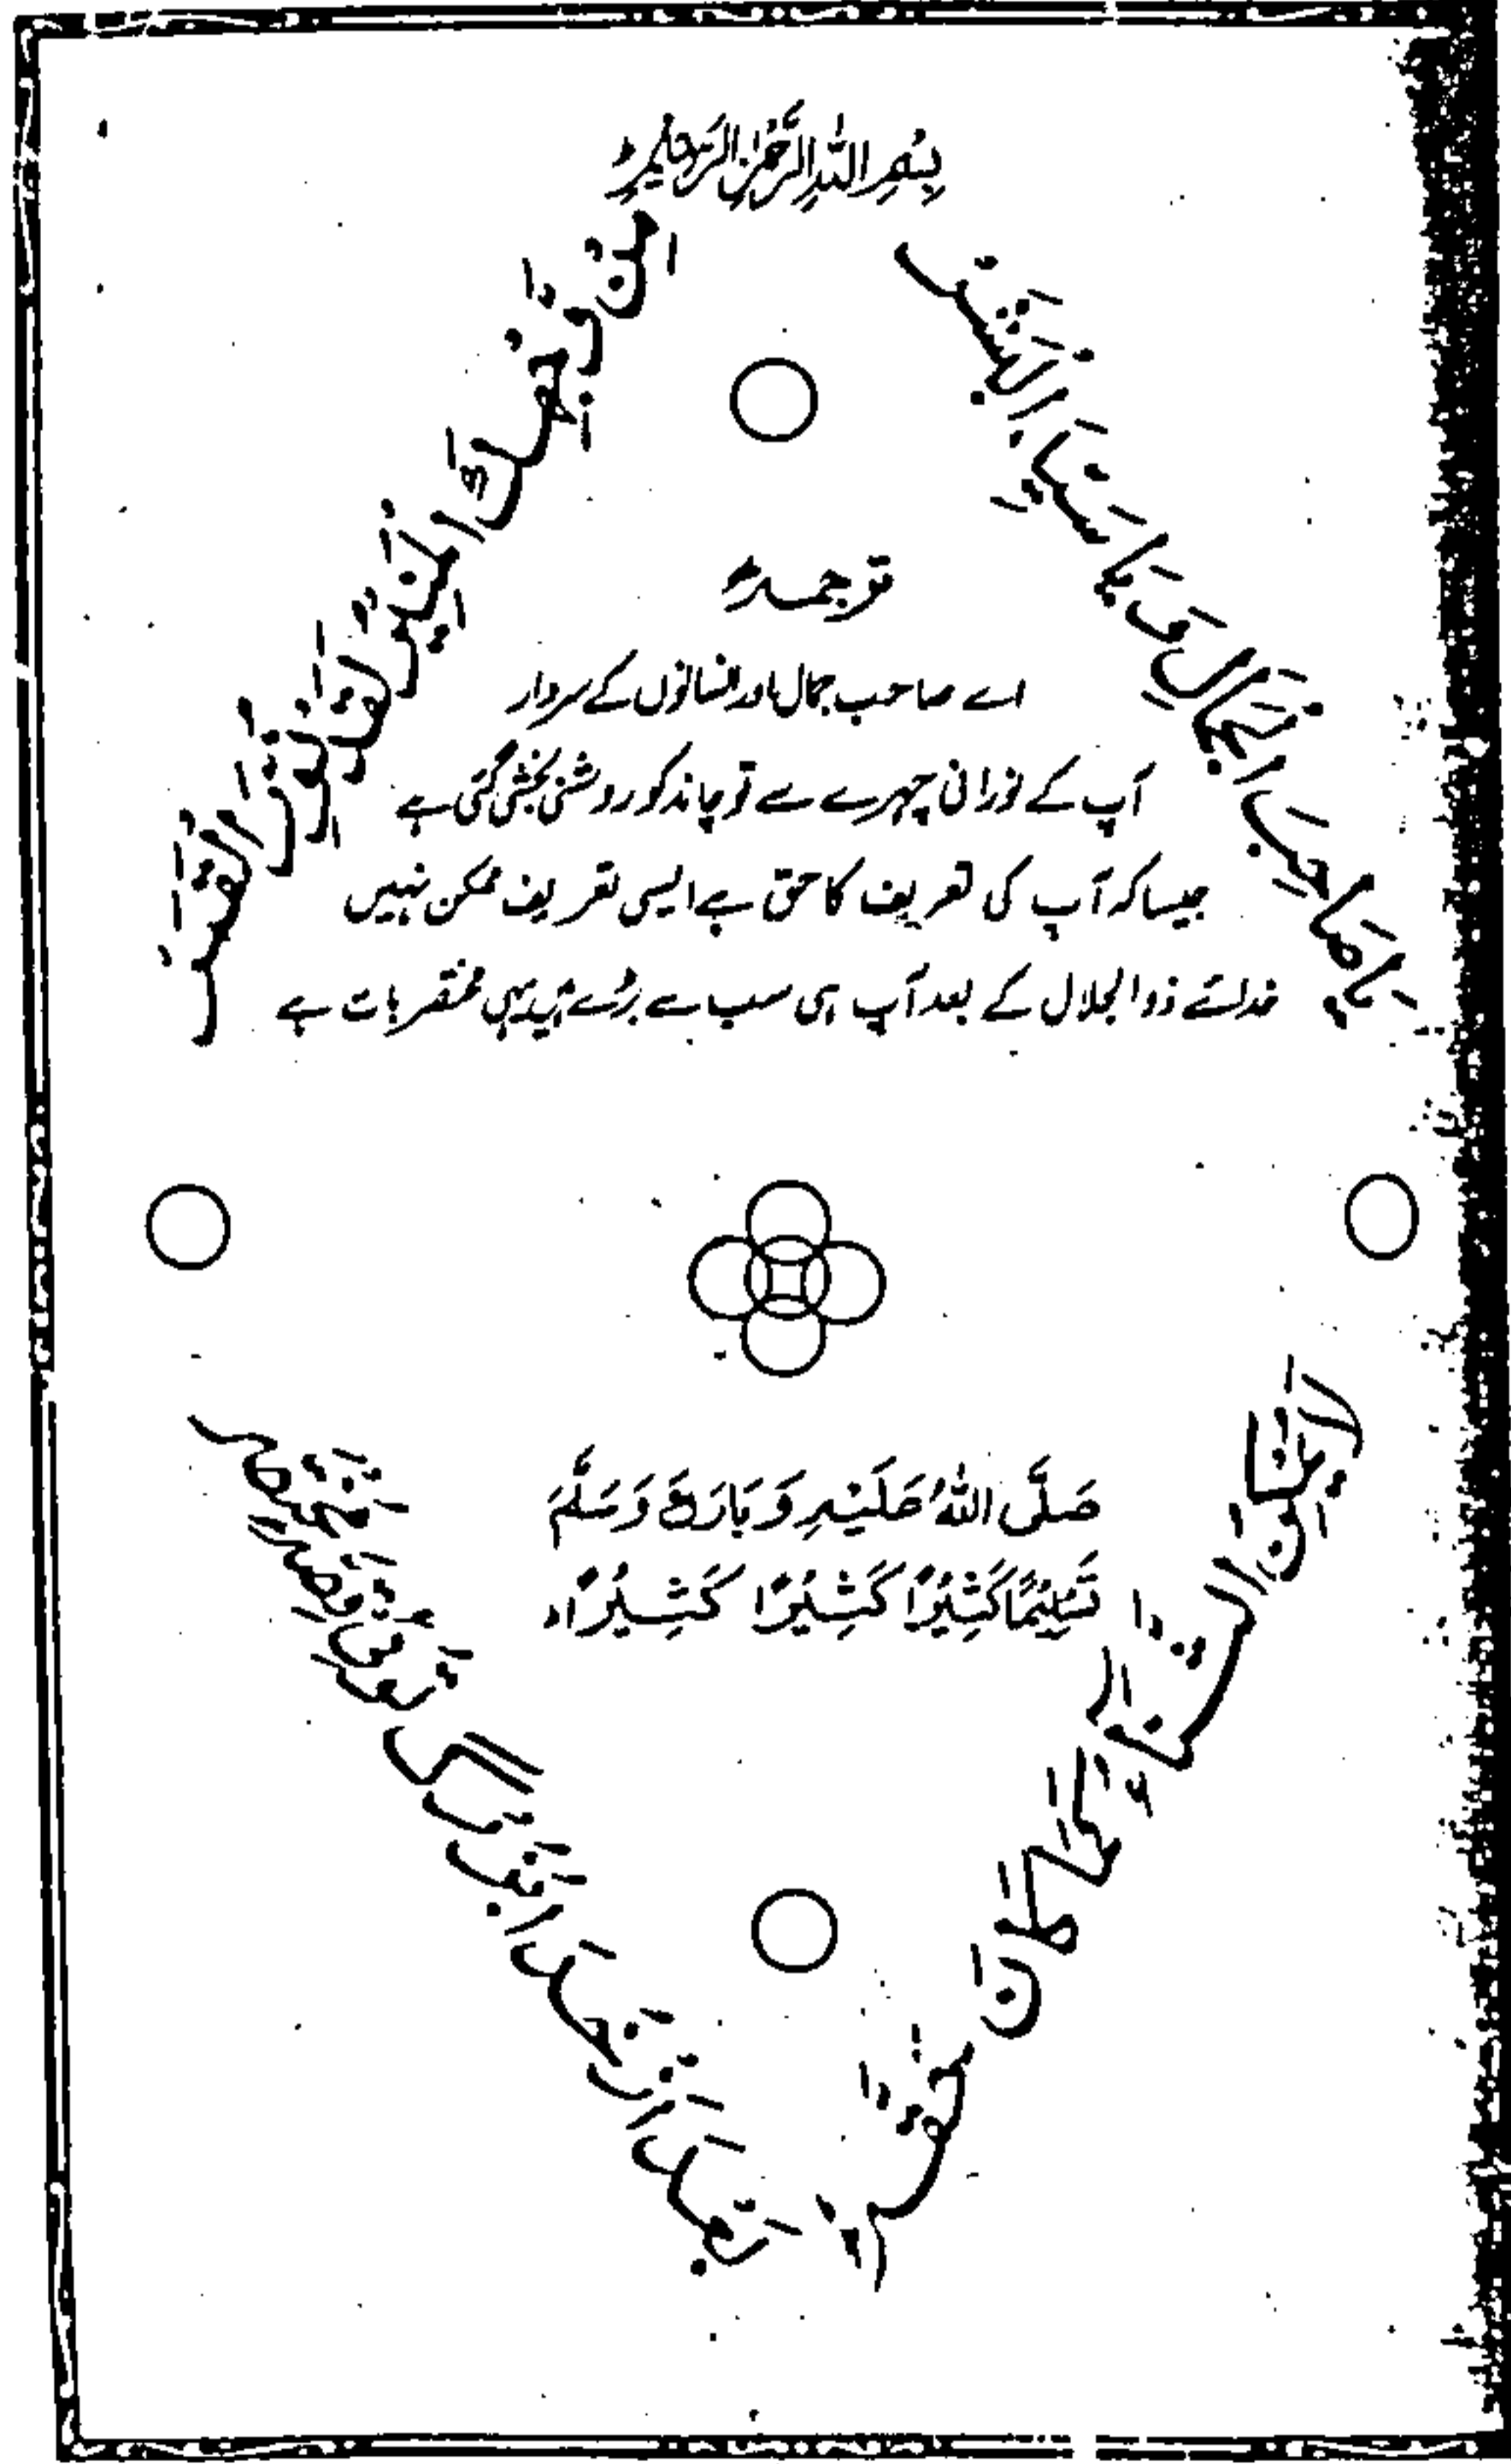 بِسْمِ اللهِ الرَّحْمٰنِ الرَّحِيْمِ
يَا صَاحِبَ الْجَمَالِ وَ يَا سَيِّدَ الْبَشَرْ
مِنْ وَّجْهِكَ الْمُنِيْرِ لَقَدْ نُوِّرَ الْقَمَرْ
ترجمہ
اے صاحب جمال اور انسانوں کے سردار
آپ کے نورانی چہرے سے تو چاند کو روشنی بخشی گئی ہے
جیسا کہ آپ کی تعریف کا حق ہے ایسی تعریف ممکن نہیں
خدائے ذوالجلال کے بعد آپ ہی سب سے بڑے ہیں یہی مختصر بات ہے
صَلَّى اللهُ عَلَيْهِ وَ بَارَكَ وَسَلَّمَ
تَسْلِيْمًا كَثِيْرًا كَثِيْرًا كَثِيْرًا
لَا يُمْكِنُ الثَّنَاءُ كَمَا كَانَ حَقُّهٗ
بعد از خدا بزرگ توئی قصہ مختصر